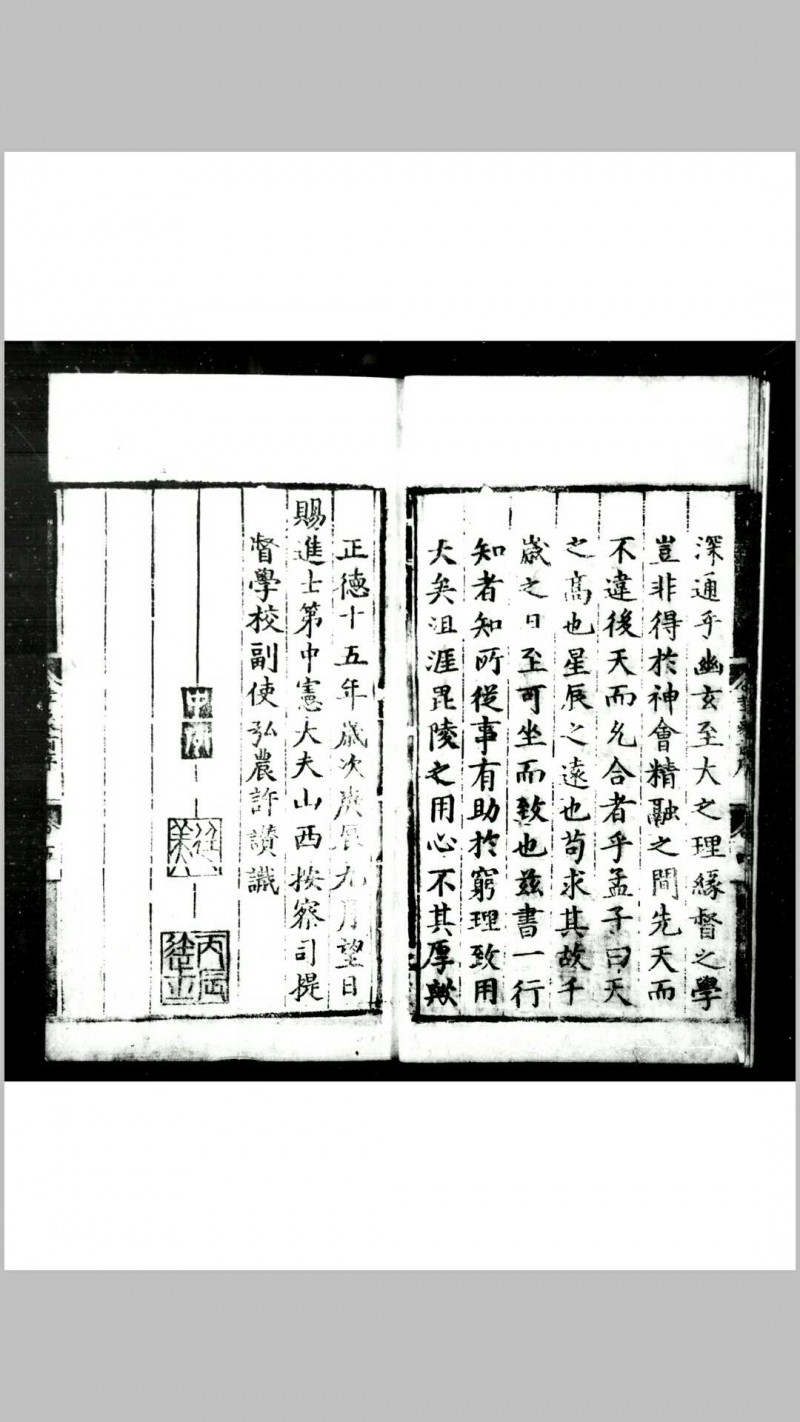 深通乎幽玄至大之理緣督之學
豈非得於神會精融之間先天而
不違後天而允合者乎孟子曰天
之高也星辰之遠也苟求其故千
歲之日至可坐而致也兹書一行
知者知所從事有助於窮理致用
大矣沮涯毘陵之用心不其厚歟
正德十五年歲次庚辰九月望日
賜進士第中憲大夫山西按察司提
督學校副使弘農許讚識
丙辰進士